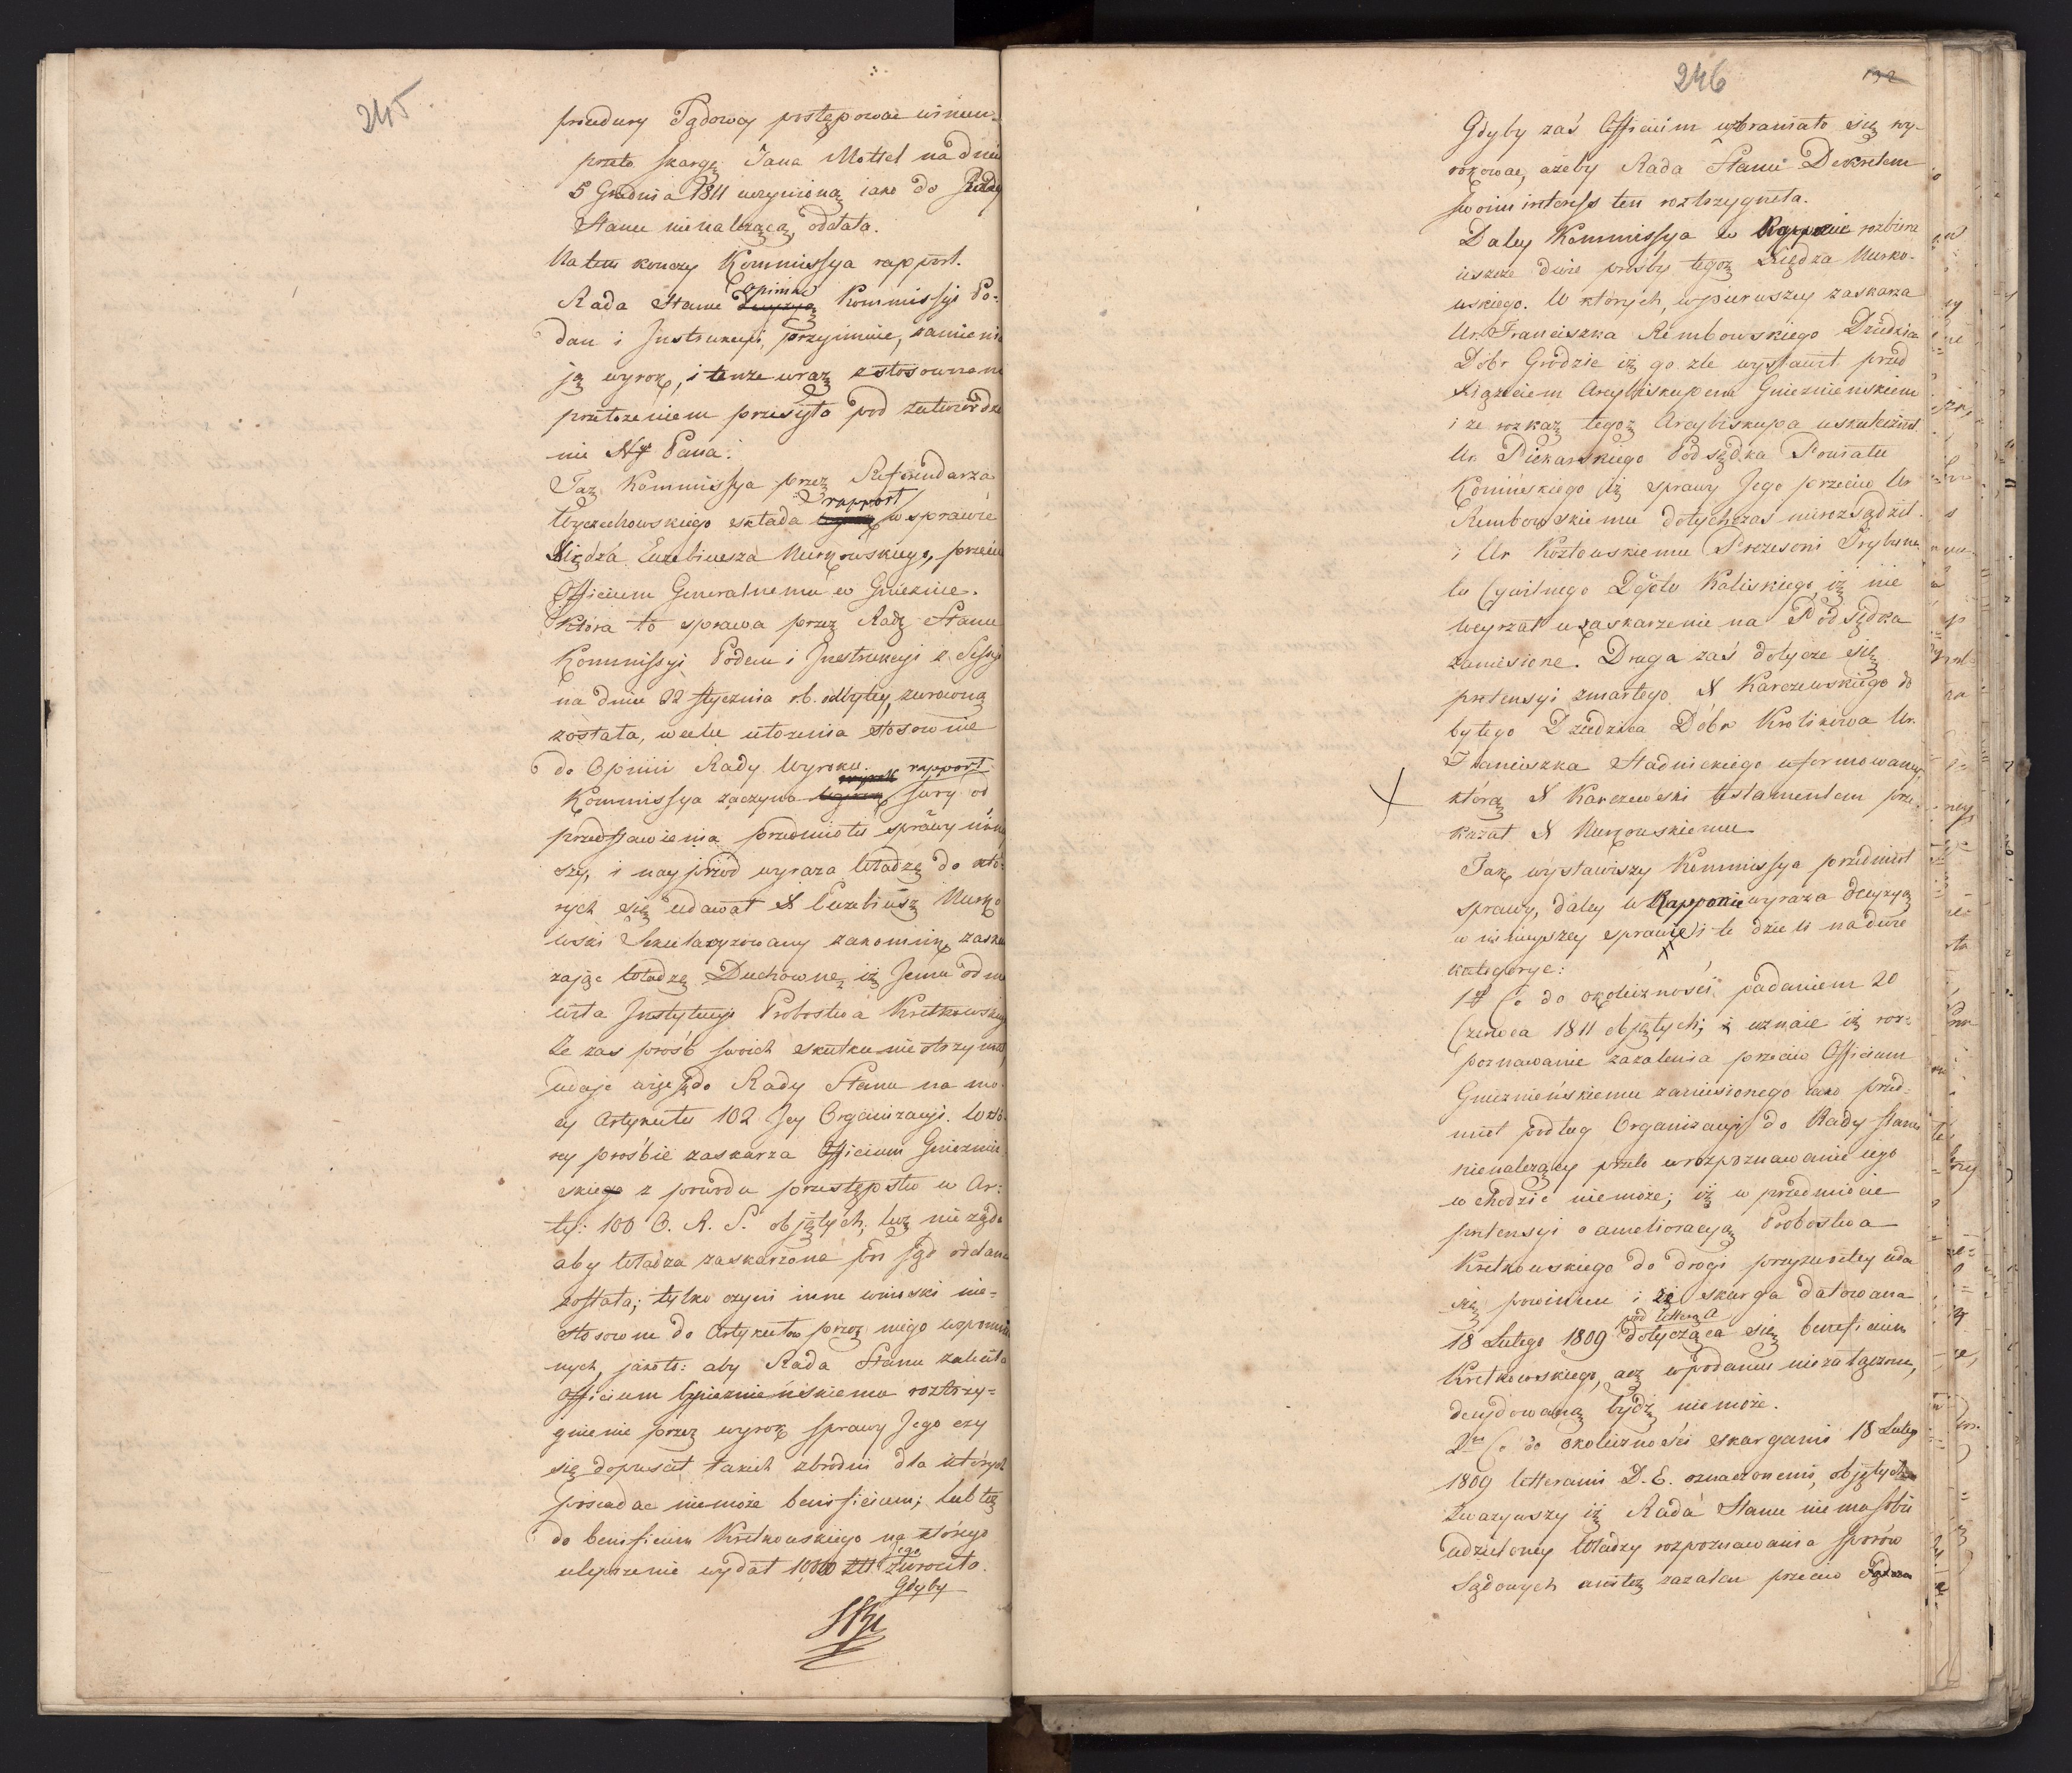 245
procedury Sądowey postępować winien
przeto skargę Jana Mottel na dniu
5 Grudnia 1811 uczynioną iako do Rady
Stanu nienależącą, oddala.
Na tem kończy Kommissya rapport.
Opinią
Rada Stanu Kommissyi Po=
dan i Instrukcyi, przyimuie, zamienia
ją wyrok, i tenże wraz z stosownem
przełożeniem przesyła pod zatwierdze
nie NJ Pana.
Taż Kommissya przez Referendarza
rapport
Wyczechowskiego składa w sprawie
Xiędza Euzebiusza Murkowskiego, przeciw
Officium Generalnemu w Gnieznie.
Która to sprawa przez Radę Stanu
Kommissyi Podań i Instrukcyi z Sessyi
na dniu 22 stycznia r.b. odbytey, zwrócona
została, w celu ułożenia stosownie
do Opinii Rady Wyroku.
wyrok rapport
Kommissya zaczyna swoy od
przedstawienia przedmiotu sprawy ninie
szey, i nayprzod wyraża Władze do któ=
rych się udawał X Euzebiusz Murko
wski Sekularyzowany zakonnik, zaskar
żając Władzę Duchowną iż Jemu odmó
wiła Instytucyi Probostwa Kretkowskiego
Że zas prośb swoich skutku nie otrzymał,
udaje więc się do Rady Stanu na mo=
cy Artykułu 102 Jey Organizacyi. W któ=
rey prośbie zaskarża Officium Gnieznień
skiego z powodu przestępstw w Ar:
tyk: 100 O. R. S. objętych; lecz nie żąda
aby Władza zaskarżona pod Sąd oddana
została; tylko czyni inne wnioski nie=
stosowne do Artykułów przez niego wspomnio
nych, jakoto: aby Rada Stanu zaleciła
Officium Gniezninieńskiemu roztrzy=
gnienie przez wyrok sprawy Jego czy
się dopuścił takich zbrodni dla których
posiadać niemoże benificium; lub też
do benificium Kretkowskiego na którego
ego
ulepszenie wydał 10000 złł. zwróciło.
Gdyby

246
132
Gdyby zaś Officium wzbraniało się wy=
rokować, ażeby Rada Stanu Dekretem
swoim interess ten roztrzygnęła.
Daley Kommissya w Rapporcie rozbiera
ieszcze dwie prośby tegoż Xiędza Murko=
wskiego. W których, w pierwszey zaskarża
Ur. Franciszka Rembowskiego Dziedzica
Dóbr Grodzie iż go źle wystawił przed
Xiążęciem Arcybiskupem Gnieznieńskiem
i że rozkaz tegoż Arcybiskupa uskutecznił
Ur. Piekarskiego Podsędka Powiatu
Konińskiego iż sprawy Jego przeciw Ur
Rembowskiemu dotychczas nierozsądził.
i Ur Kozłowskiemu Prezesowi Trybuna
łu Cywilnego Dptu Kaliskiego, iż nie
weyrzał w zaskarżenie na Podsędka
zaniesione. Druga zaś dotycze się
pretensyi zmarłego X Karczewskiego do
byłego Dziedzica Dóbr Krolikowa Ur.
Franciszka Stadnickiego uformowaney,
którą X Karczewski testamentem prze=
kazał X Murkowskiemu
Tak wystawiwszy Kommissya przedmiot
sprawy, daley w Rapporcie wyraża decyzyą
w ninieyszey sprawie i te dzieli na dwie
kategorye:
1° Co do okoliczności podaniem 20
Czerwca 1811 objętych; uznaie iż roz=
poznawanie zażalenia przeciw Officium
Gnieznieńskiemu zaniesionego iako przed=
miot podług Organizacyi do Rady Stanu
nienależący przeto w rozpoznawanie iego
wchodzić niemoże; iż w przedmiocie
pretensyi o amelioracyą Probostwa
Kretkowskiego do drogi przyzwoitey udać
się powinien i że skarga datowana
pod litterą A
18 Lutego 1809 dotycząca się beneficium
Kretkowskiego, acz w podaniu niezałączona,
decydowaną bydź niemoże.
2re Co do okoliczności skargami 18 Lutego
1809 litterami D. E. oznaczonemi, objętych
Zważywszy iż Rada Stanu nie ma sobie
udzieloney Władzy rozpoznawania sporów
Sądowych ani też zażaleń przeciw Sądom